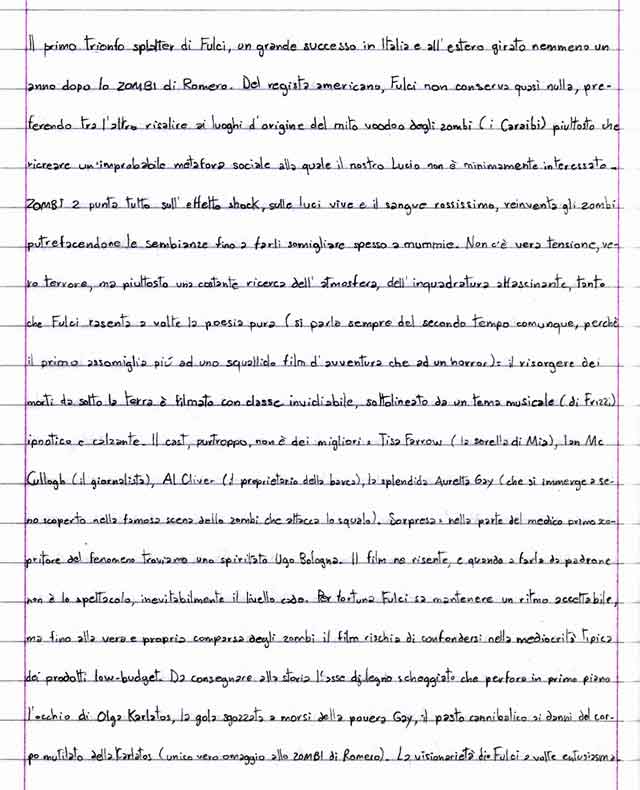 Il primo trionfo splatter di Fulci, un grande successo in Italia e all'estero girato nemmeno un
anno dopo lo ZOMBI di Romero. Del regista americano, Fulci non conserva quasi nulla, pre-
ferendo tra l'altro risalire ai luoghi d'origine del mito voodoo degli zombi (i Caraibi) piuttosto che
ricreare un'improbabile metafora sociale alla quale il nostro Lucio non è minimamente interessato.
ZOMBI 2 punta tutto sull'effetto shock, sulle luci vive e il sangue rossissimo, reinventa gli zombi
putrefacendone le sembianze fino a farli somigliare spesso a mummie. Non c'è vera tensione, ve-
ro terrore, ma piuttosto una costante ricerca dell'atmosfera, dell'inquadratura affascinante, tanto
che Fulci rasenta a volte la poesia pura (si parla sempre del secondo tempo comunque, perchè
il primo assomiglia più ad uno squallido film d'avventura che ad un horror): il risorgere dei
morti da sotto la terra è filmato con classe invidiabile, sottolineato da un tema musicale (di Frizzi)
ipnotico e calzante. Il cast, purtroppo, non è dei migliori: Tisa Farrow (la sorella di Mia), Ian Mc
Cullogh (il giornalista), Al Cliver (il proprietario della barca), la splendida Auretta Gay (che si immerge a se-
no scoperto nella famosa scena dello zombi che attacca lo squalo). Sorpresa: nella parte del medico primo sco-
pritore del fenomeno troviamo uno spiritato Ugo Bologna. Il film ne risente, e quando a farla da padrone
non è lo spettacolo, inevitabilmente il livello cade. Per fortuna Fulci sa mantenere un ritmo accettabile,
ma fino alla vera e propria comparsa degli zombi il film rischia di confondersi nella mediocrità tipica
dei prodotti low-budget. Da consegnare alla storia l'asse di legno scheggiato che perfora in primo piano
l'occhio di Olga Karlatos, la gola sgozzata a morsi della povera Gay, il pasto cannibalico ai danni del cor-
po mutilato della Karlatos (unico vero omaggio allo ZOMBI di Romero). La visionarietà di Fulci a volte entusiasma